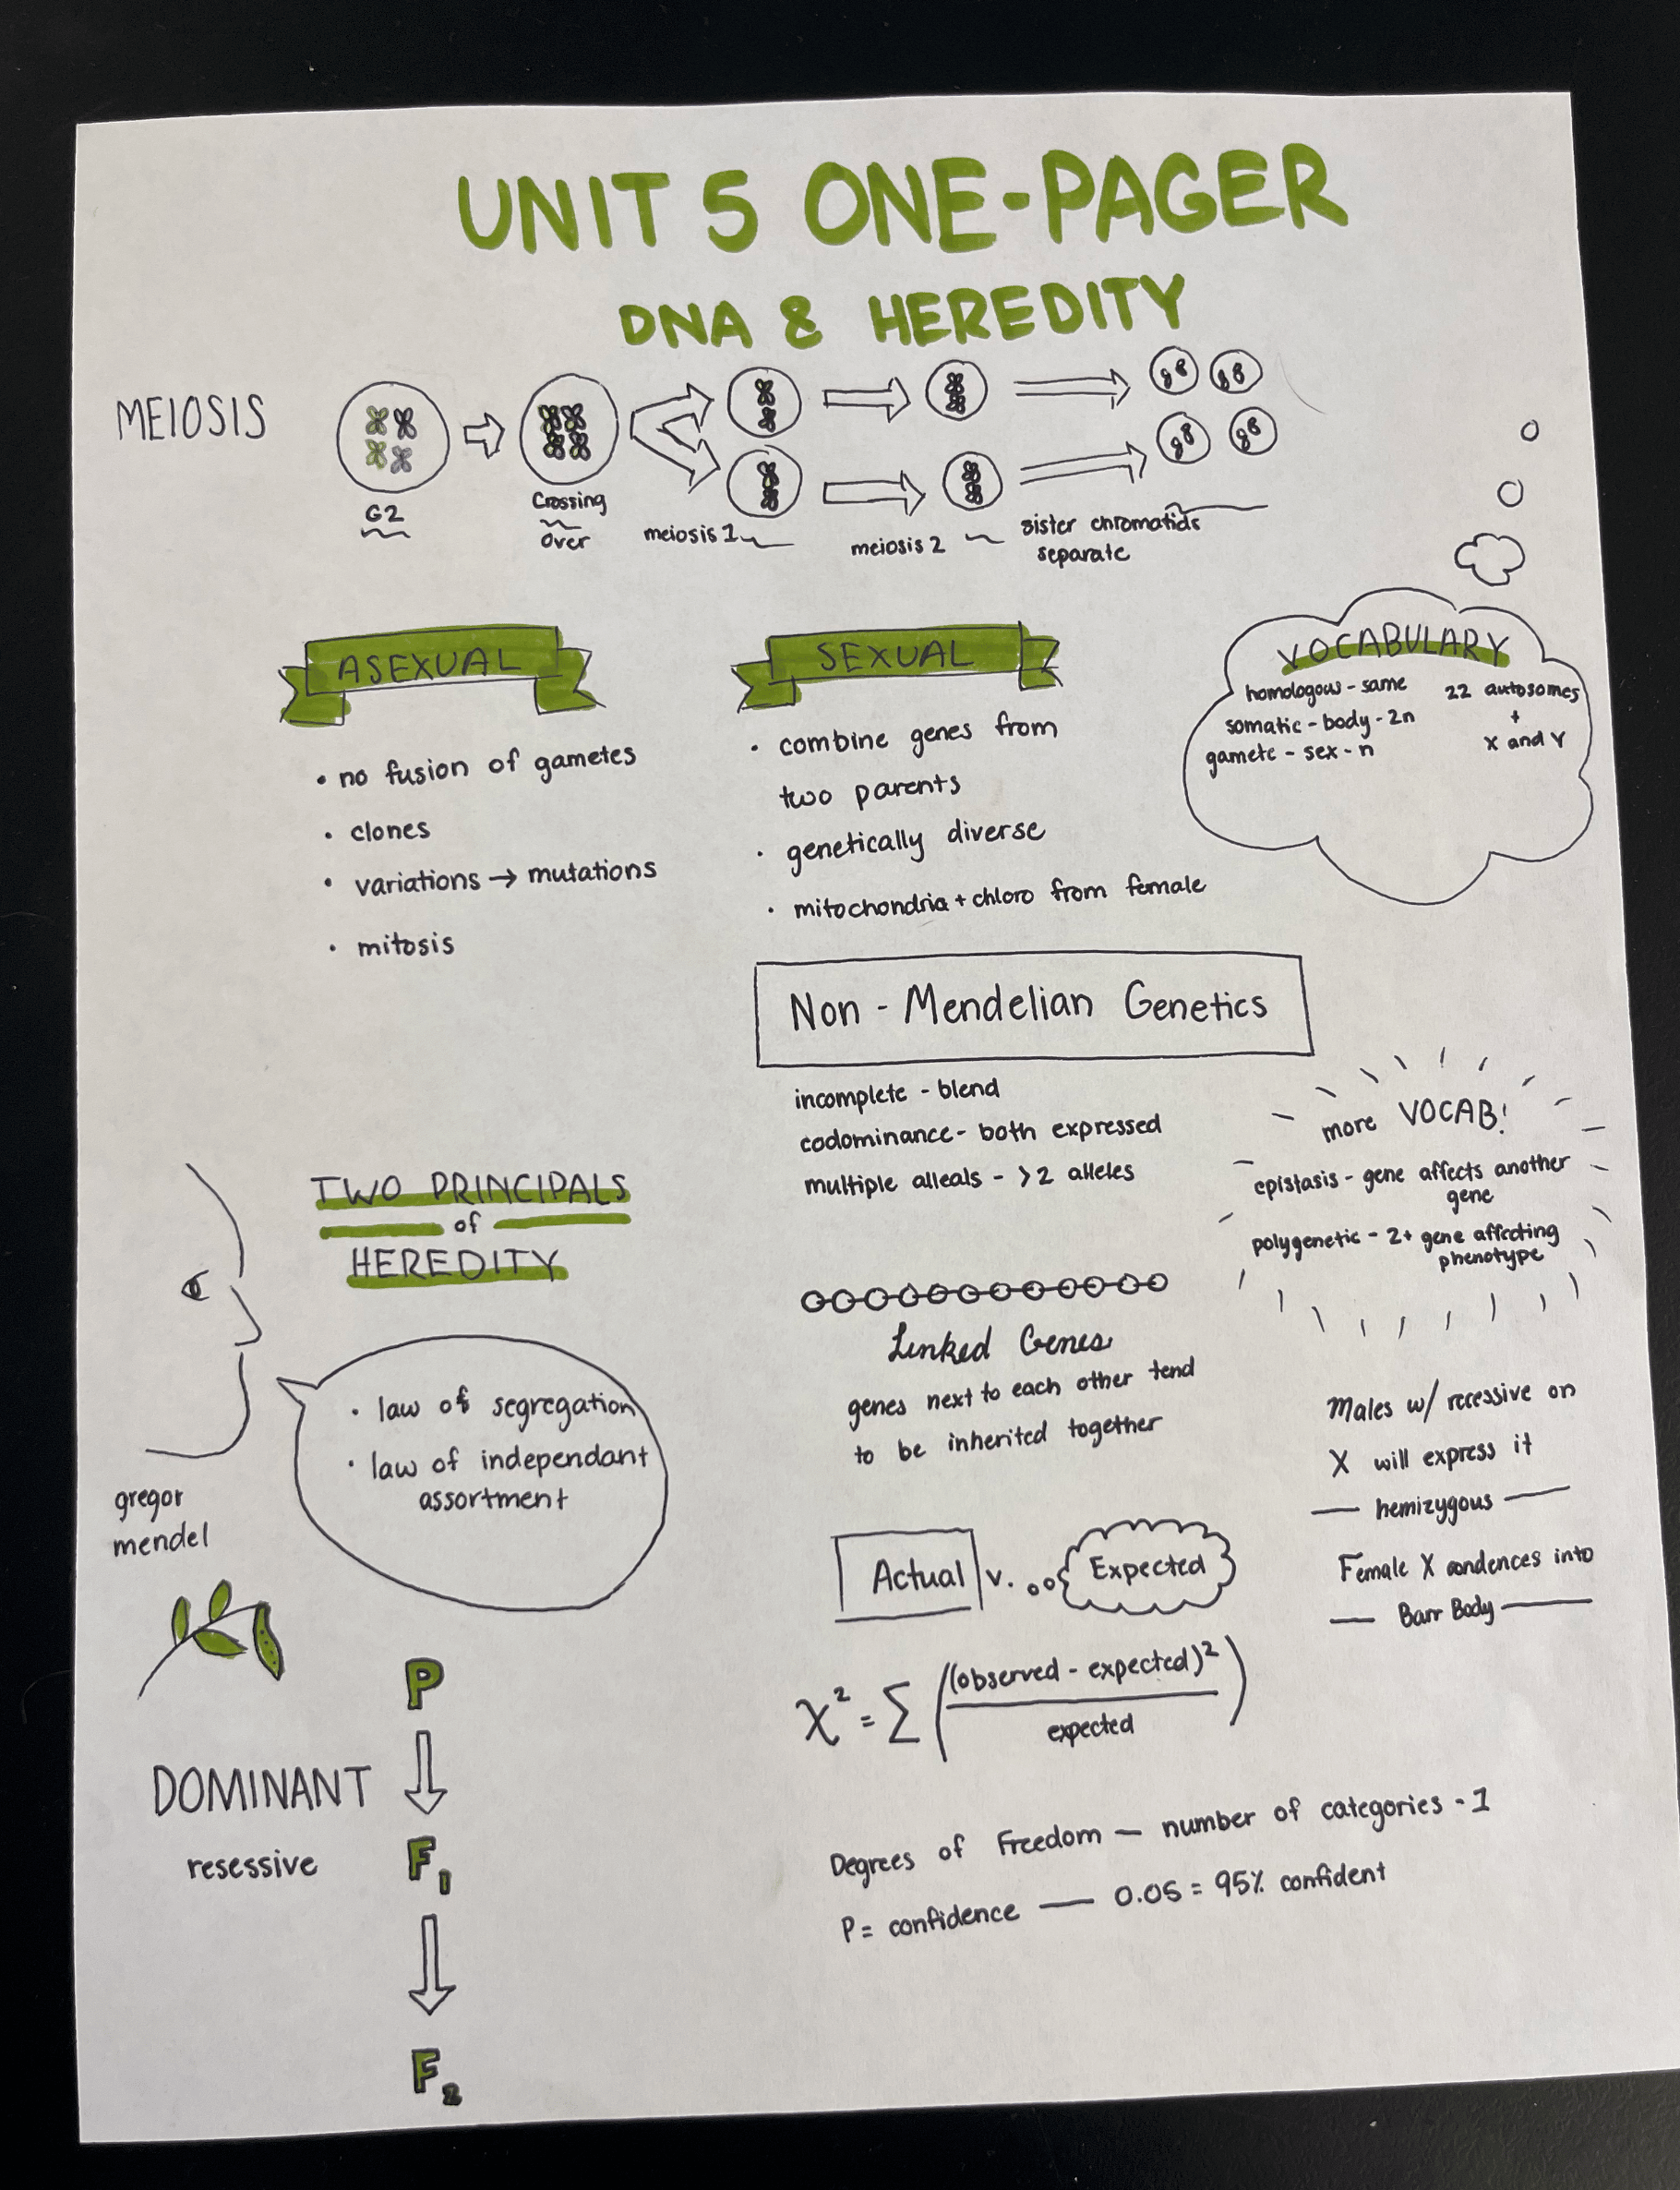 UNIT 5 ONE-PAGER
DNA & HEREDITY
MEIOSIS
G2
Crossing
Over
meiosis 1
meiosis 2
sister chromatids
separate
ASEXUAL
• no fusion of gametes
• clones
• variations → mutations
• mitosis
SEXUAL
• combine genes from
two parents
• genetically diverse
• mitochondria + chloro from female
VOCABULARY
homologous - same
somatic - body - 2n
gamete - sex - n
22 autosomes
+
X and Y
Non - Mendelian Genetics
incomplete - blend
codominance - both expressed
multiple alleals - >2 alleles
more VOCAB!
epistasis - gene affects another
gene
polygenetic - 2+ gene affecting
phenotype
TWO PRINCIPALS
of
HEREDITY
• law of segregation
• law of independant
assortment
gregor
mendel
Linked Genes
genes next to each other tend
to be inherited together
Males w/ recessive on
X will express it
— hemizygous —
Female X condences into
— Barr Body —
Actual v. Expected
χ² = Σ ((observed - expected)²
expected)
Degrees of Freedom — number of categories - 1
P = confidence — 0.05 = 95% confident
P
DOMINANT
resessive
F1
F2